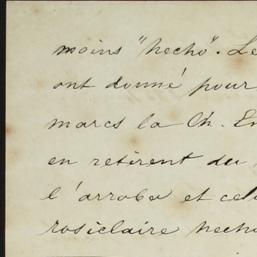 moins "hecho". Le
ont donné pour
marcs la Ch. En
en retirent du
l'arroba et cel
rosiclaire hecho